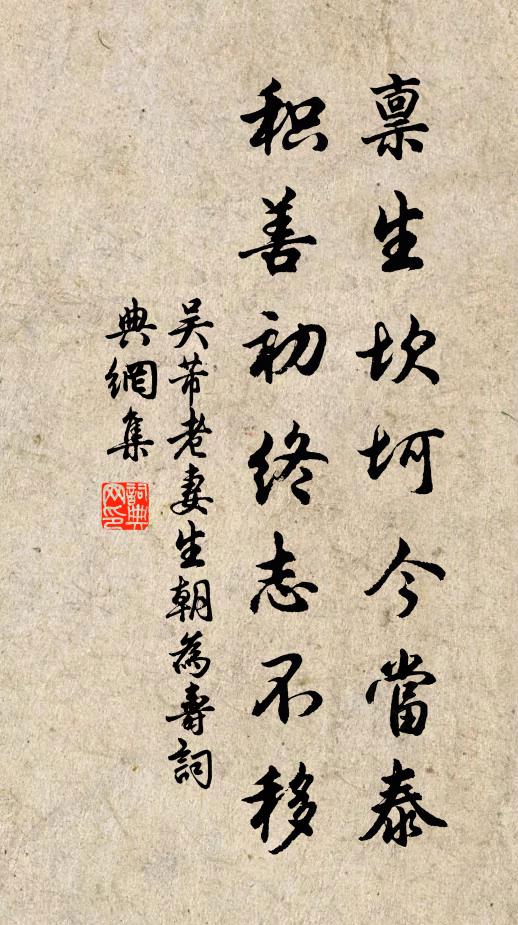 禀生坎坷今當泰
积善初終志不移
吴芾老妻生朝為壽詞
典網集
詞典
网印